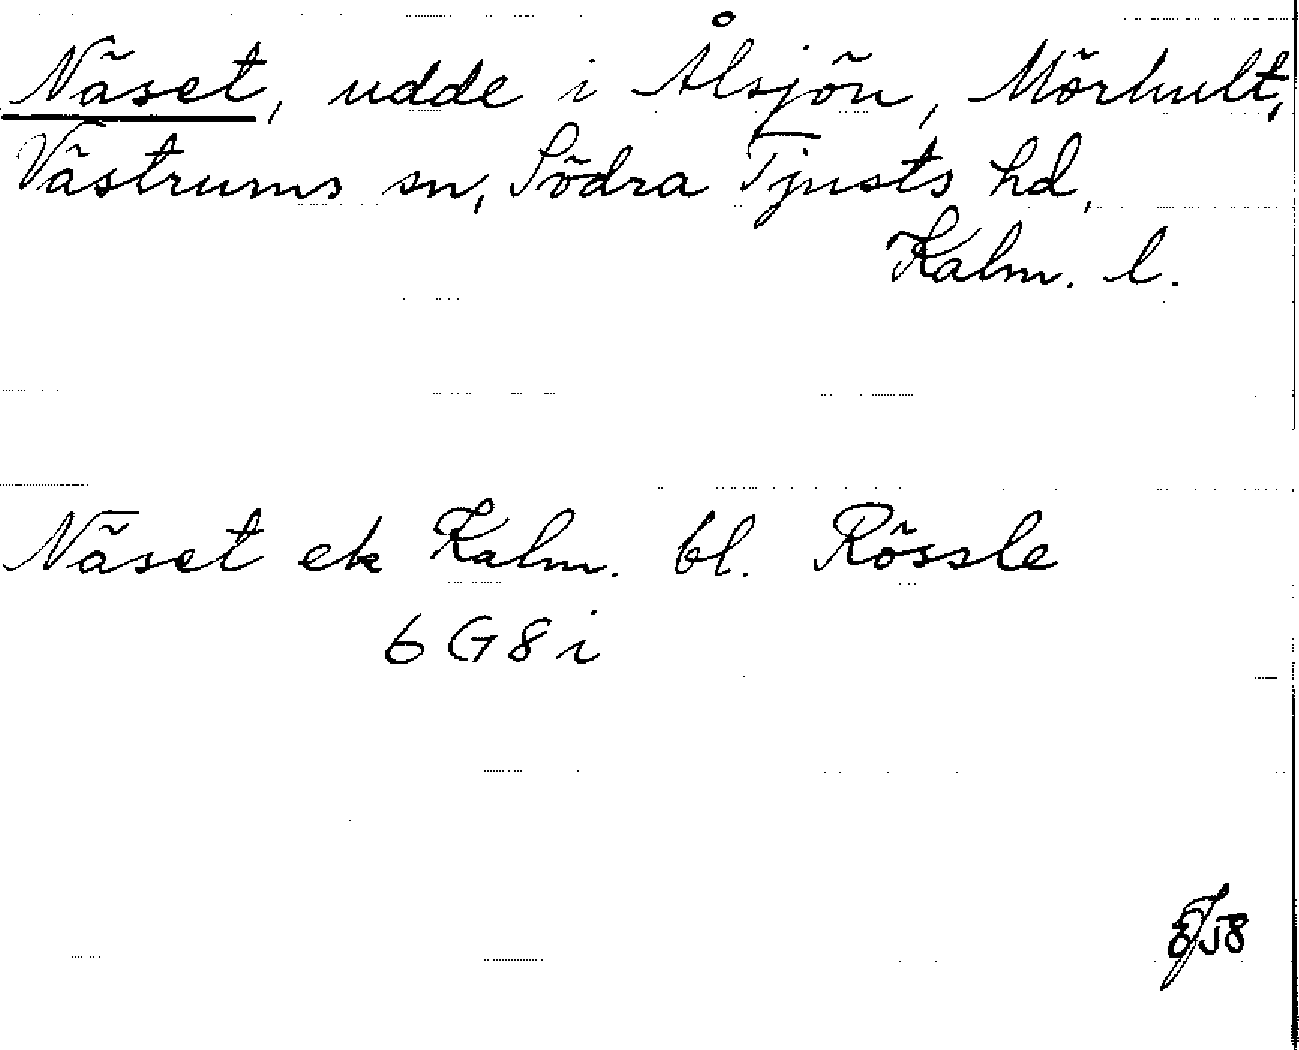 Näset, udde i Ålsjön, Mörhult,
Västrums sn, Södra Tjusts hd,
Kalm. l.
Näset ek Kalm. bl. Rössle
6 G 8 i